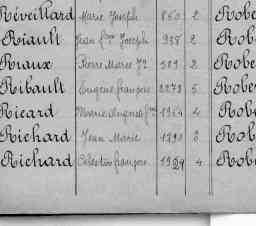 Réveillard Marie Joseph 860 2 Robe
Riault Jean fçois Joseph 938 2 Rob
Riaux Pierre Marie Jn 589 2 Robe
Ribault Eugène françois 2272 5 Rober
Ricard Marie Ange 1964 4 Robe
Richard Jean Marie 1290 3 Rob
Richard Célestin françois 1929 4 Robi